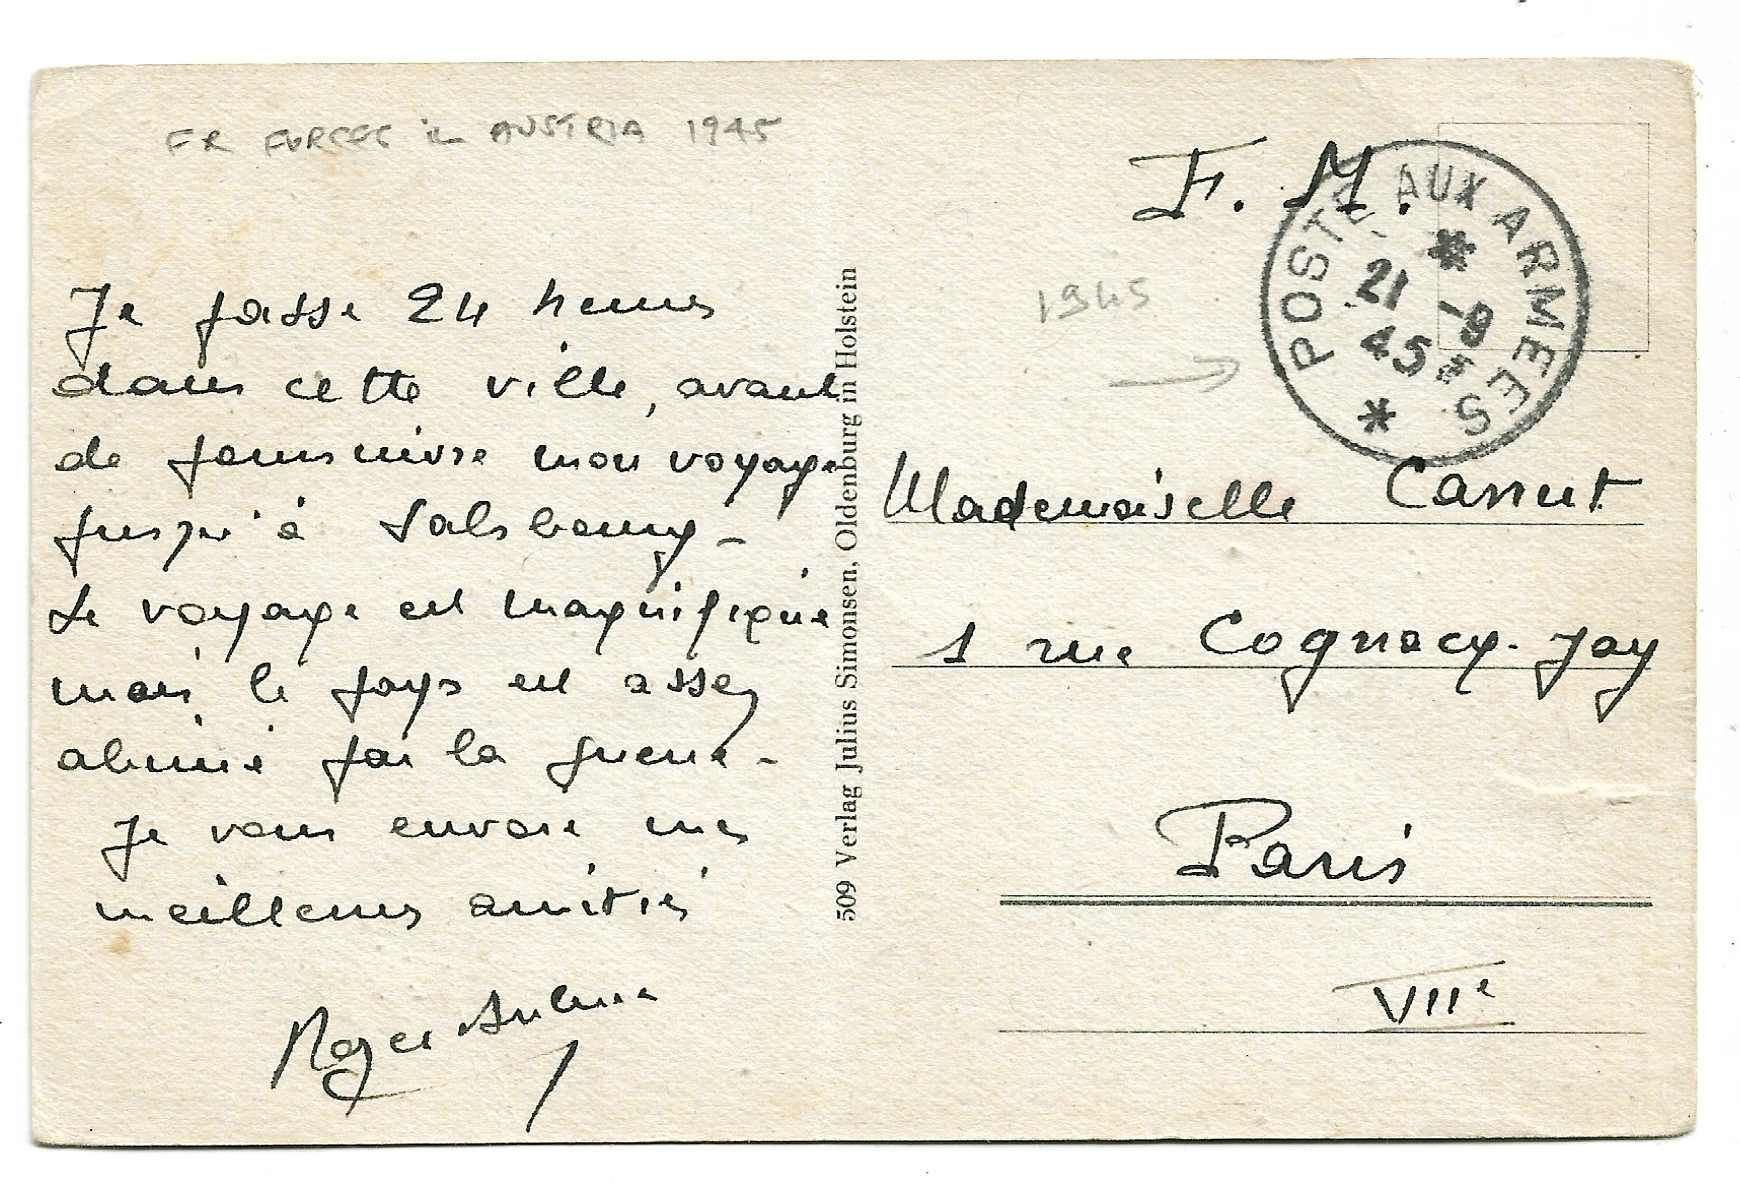 FR FORCES in AUSTRIA 1945
Je passe 24 heures
dans cette ville, avant
de poursuivre mon voyage
jusqu'à Salsbourg -
Le voyage est magnifique
mais le pays est assez
abimé par la guerre -
Je vous envoie mes
meilleures amitiés
Roger
509 Verlag Julius Simonsen, Oldenburg in Holstein
F. M.
POSTE AUX ARMEES
21 -9
45
1945
Mademoiselle
1 rue Cognacq-Jay
Paris
VIIe